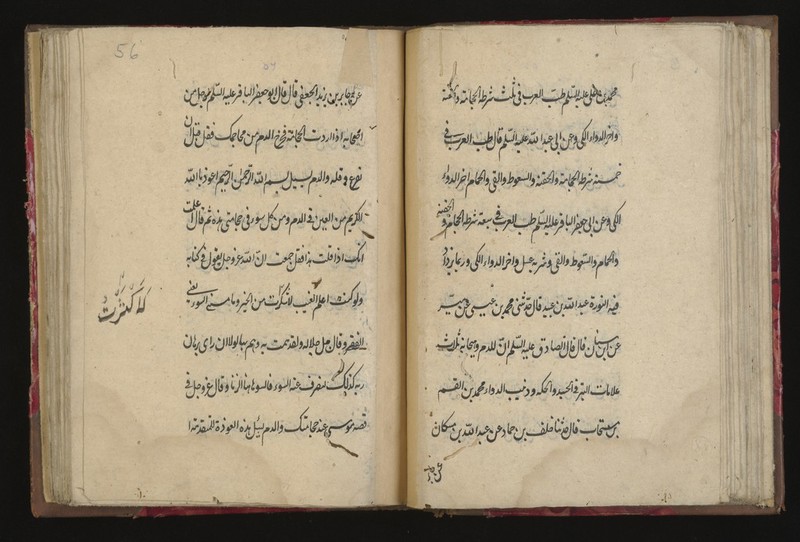 محمد بن علي عليه السلم طب العرب في ثلث شرطة الحجامة والحقنة
واخر الدواء الكي وعن ابي عبد الله عليه السلم قال طب العرب في
خمسة شرطة الحجامة والحقنة والسعوط والقي والحمام واخر الدواء
الكي وعن ابي جعفر الباقر عليه السلم طب العرب في سبعة شرطة الحجامة والحقنة
والحمام والسعوط والقي وشربة عسل واخر الدواء الكي وربما يزاد
فيه النورة عبد الله بن عبيد قال حدثني محمد بن عيسى عن ميسر
عن ابن سنان قال قال الصادق عليه السلم ان للدم وهيجانه ثلاث
علامات البثر في الجسد والحكة ودبيب الدواء محمد بن القسم
بن منجاب قال حدثنا خلف بن حماد عن عبد الله بن مسكان
عن جابر
56
عن جابر بن يزيد الجعفي قال قال ابو جعفر الباقر عليه السلم لرجل من
اصحابه اذا اردت الحجامة فخرج الدم من محاجمك فقل قبل ان
تفرغ وقله والدم يسيل بسم الله الرحمن الرحيم اعوذ بالله
الكريم من العين في الدم ومن كل سوء في حجامتي هذه ثم قال اعلمت
انك اذا قلت هذا فقد جمعت ان الله عز وجل يقول في كتابه
ولو كنت اعلم الغيب لاستكثرت من الخير وما مسني السوء يعني
الفقر وقال جل جلاله ولقد همت به وهم بها لولا ان راى برهان
ربه كذلك لنصرف عنه السوء فالسوء هاهنا الزنا وقال عز وجل في
قصة موسى عند حجامتك والدم يسيل هذه العوذة المتقدمة